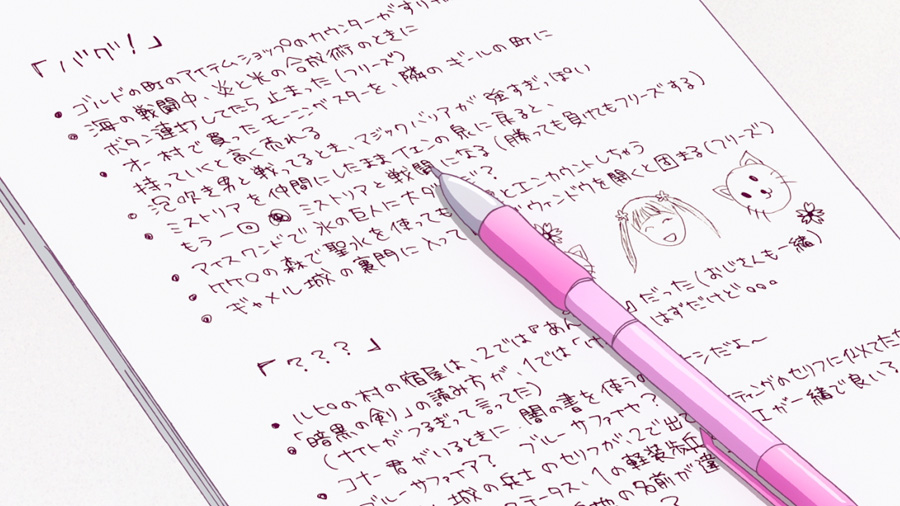 「バグ!」
ゴルドの町のアイテムショップのカウンターがすり
海の戦闘中、炎と氷の合成術のときに
ボタン連打してたら止まった(フリーズ)
オー村で買ったモーニングスターを、隣のギールの町に
持っていくと高く売れる
泡吹き男と戦ってるとき、マジックバリアが強すぎっぽい
ミストリアを仲間にしたままイエンの泉に戻ると、
もう一回ミストリアと戦闘になる(勝っても負けてもフリーズする)
アイスワンドで氷の巨人に
ケケロの森で聖水を使っても とエンカウントしちゃう
ギャメル城の裏門に入って ウィンドウを開くと固まる(フリーズ)
「???」
ルピの村の宿屋は、2では『あん 』だった(おじさんも一緒)
「暗黒の剣」の読み方が、1では「 はずだけど。。。
(ナイトがつるぎって言ってた)
コナー君がいるときに闇の書を使うの シだよ〜
ブルーサファイア? ブルーサファイヤ?
城の兵士のセリフが、2で出て ティングのセリフに似てた
ステータス、1の軽装歩兵 が一緒で良い?
の名前が違